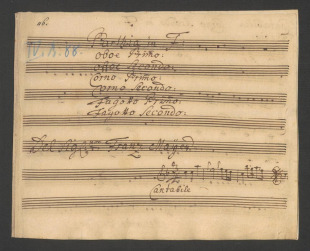 26.
Parthia in F:
oboe Primo:
oboe Secondo:
Corno Primo:
Corno Secondo:
Fagotto Primo:
Fagotto Secondo:
Del Sig:
Franz
Cantabile